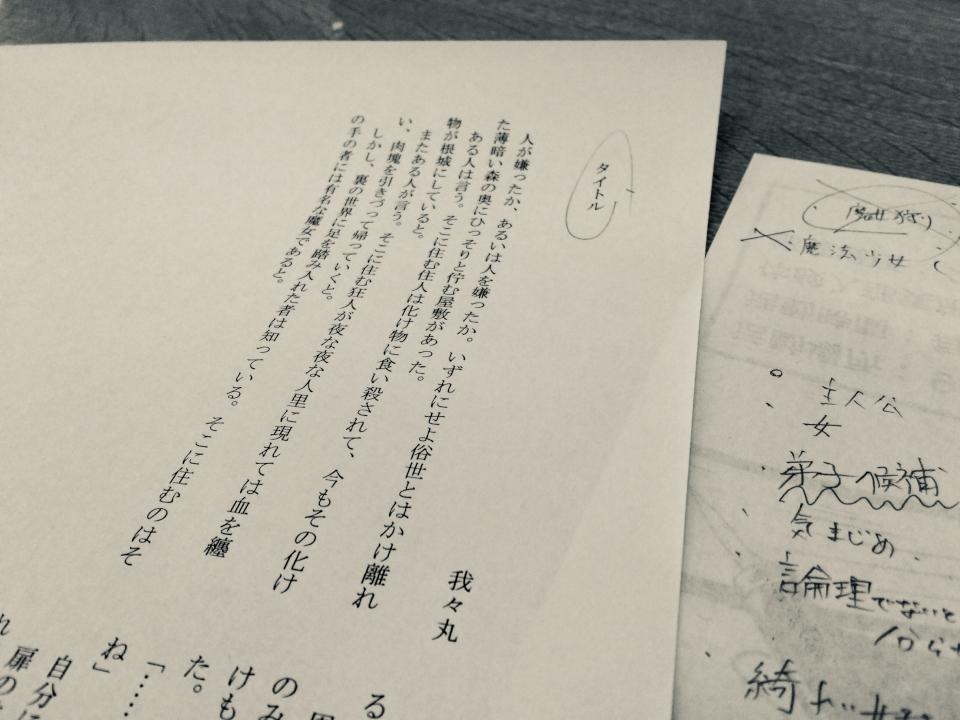 タイトル
我々丸
人が嫌ったか、あるいは人を嫌ったか。いずれにせよ俗世とはかけ離れ
た薄暗い森の奥にひっそりと佇む屋敷があった。
ある人は言う。そこに住む住人は化け物に食い殺されて、今もその化け
物が根城にしていると。
またある人が言う。そこに住む狂人が夜な夜な人里に現れては血を纏
い、肉塊を引きづって帰っていくと。
しかし、裏の世界に足を踏み入れた者は知っている。そこに住むのはそ
の手の者には有名な魔女であると。
る
のみ
けも
た。
「……
ね」
自分に
扉の
れ
魔女狩り
魔法少女(
主人公
女
弟子候補
気まじめ.
論理でないと
分からな